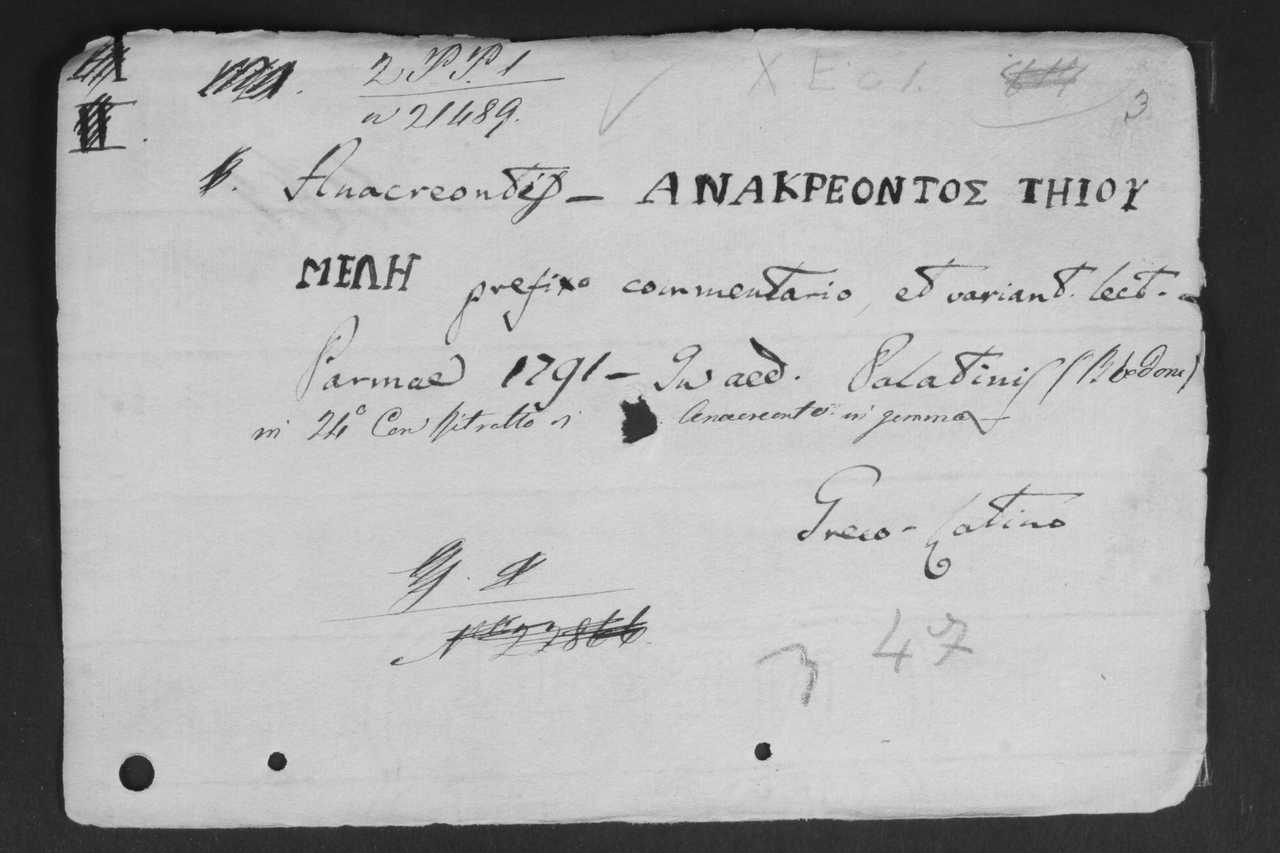 2 P. P. 1
n 21489.
X E 6 1.
3
Anacreontis – ΑΝΑΚΡΕΟΝΤΟΣ ΤΗΙΟΥ
ΜΕΛΗ prefixo commentario, et variant. lect. –
Parmae 1791 – In aed. Palatinis (Bodoni)
in 24° Con Ritratto di Anacreonte in gemma
Greco-Latino
47